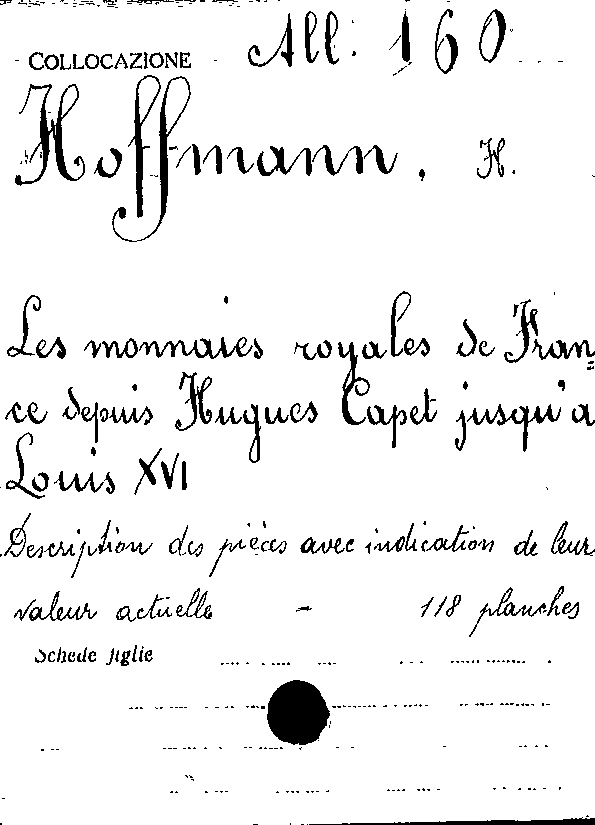 COLLOCAZIONE All. 160
Hoffmann, H.
Les monnaies royales de Fran=
ce depuis Hugues Capet jusqu'a
Louis XVI
Description des pièces avec indication de leur
valeur actuelle - 118 planches
Schede figlie